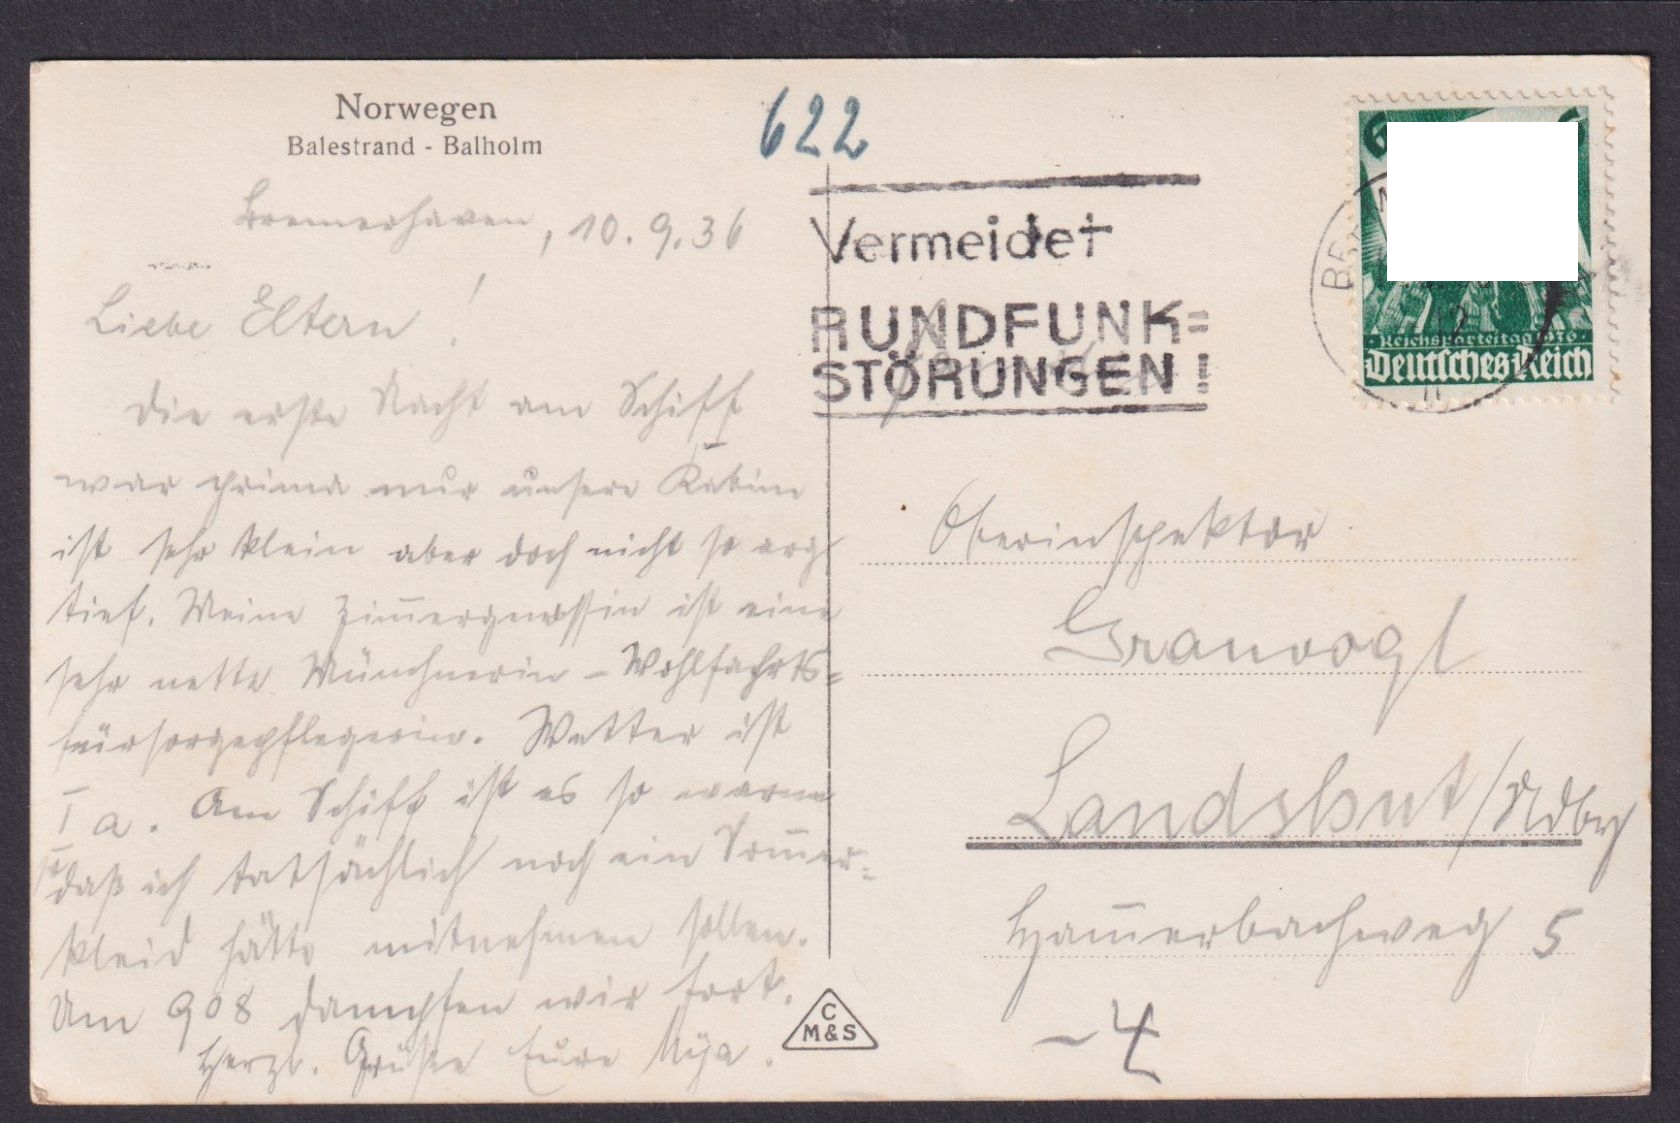 Norwegen
Balestrand - Balholm
622
Bremerhaven, 10.9.36
Liebe Eltern!
Die erste Nacht am Schiff
war prima nur unsere Kabine
ist sehr klein aber doch nicht so arg
tief. Meine Zim̅ergenossin ist eine
sehr nette Münchnerin – Wohlfahrts=
fürsorgepflegerin. Wetter ist
I a. Am Schiff ist es so warm
daß ich tatsächlich noch ein Som̅er=
kleid hätte mitnehmen sollen.
Um 908 dampfen wir fort.
Herzl. Grüße Eure
Vermeidet
RUNDFUNK=
STÖRUNGEN!
6
Reichsparteitag 1936
Deutsches Reich
Oberinspektor
Granvogl
Landshut/Ndby
Ham̅erbachweg 5
-4
C
M&S